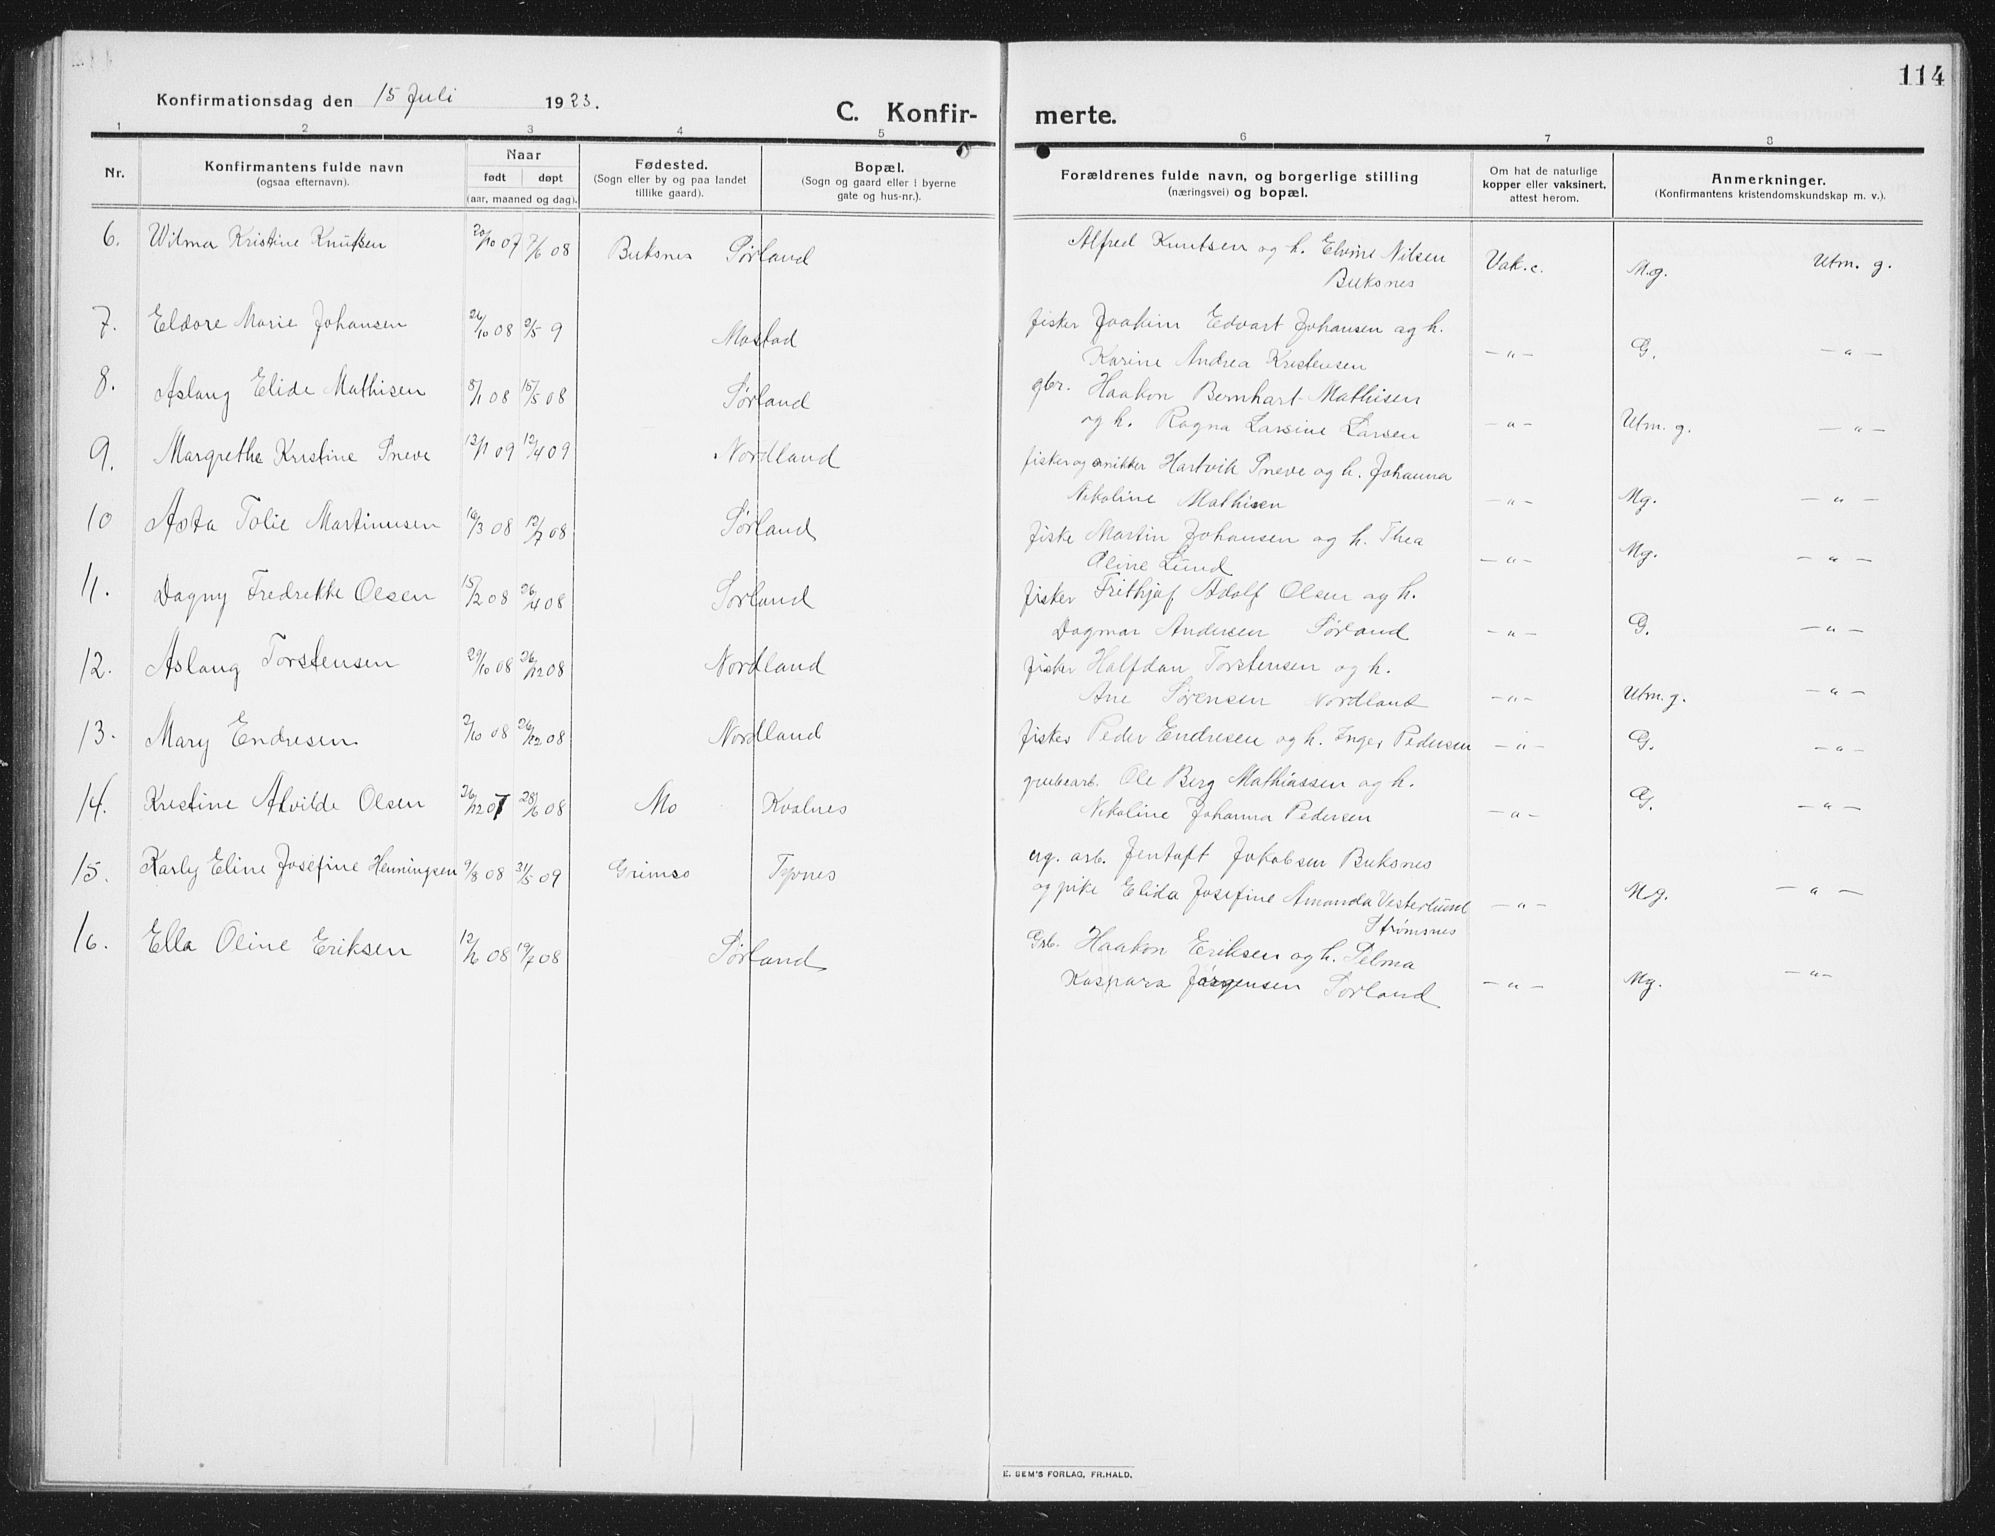 114
Konfirmationsdag den 15 Juli 1923.
C. Konfir- merte.
1 2 3 4 5 6 7 8
Nr.
Konfirmantens fulde navn
(ogsaa efternavn).
Naar
født døpt
(aar, maaned og dag).
Fødested.
(Sogn eller by og paa landet
tillike gaard).
Bopæl.
(Sogn og gaard eller i byerne
gate og hus-nr.).
Forældrenes fulde navn, og borgerlige stilling
(næringsvei) og bopæl.
Om hat de naturlige
kopper eller vaksinert,
attest herom.
Anmerkninger.
(Konfirmantens kristendomskundskap m. v.).
6. Wilma Kristine Knutsen 20/10 07 7/6 08 Buksnes Sørland Alfred Knutsen og h. Elvine Nilsen
Buksnes Vak.c. M.g. Utm. g.
7. Eldore Marie Johansen 26/10 08 2/5 9 Mostad fisker Joakim Edvart Johansen og h.
Karine Andrea Kristensen -"- G. -"-
8. Aslaug Elide Mathisen 8/1 08 15/5 08 Sørland gbr. Haakon Bernhart Mathisen
og h. Ragna Larsine Larsen -"- Utm. g. -"-
9. Margrethe Kristine Sneve 13/1 09 12/4 09 Nordland fisker og snikker Hartvik Sneve og h. Johanna
Nikoline Mathisen -"- Mg. -"-
10 Asta Tolie Martinusen 16/3 08 12/7 08 Sørland fiske Martin Johansen og h. Thea
Oline Lund -"- Mg. -"-
11. Dagny Fredrekke Olsen 15/2 08 26/4 08 Sørland fisker Frithjof Adolf Olsen og h.
Dagmar Andersen Sørland -"- G. -"-
12. Aslaug Torstensen 29/10 08 26/12 08 Nordland fisker Halfdan Torstensen og h.
Ane Sørensen Nordland -"- Utm. g. -"-
13. Mary Endresen 2/10 08 26/12 08 Nordland fisker Peder Endresen og h. Inger Pedersen -"- G. -"-
14. Kristine Alvilde Olsen 26/12 07 28/6 08 Mo Kvalnes grubearb. Ole Berg Mathiassen og h.
Nikoline Johanna Pedersen -"- G. -"-
15. Karly Eline Josefine Henningsen 9/8 08 31/5 09 Grimsø Tyvnes ug. arb. Jentoft Jakobsen Buksnes
og pike Elida Josefine Amanda Vesterlund
Strømsnes -"- M.g. -"-
16. Ella Oline Eriksen 12/6 08 19/7 08 Sørland Grb. Haakon Eriksen og h. Selma
Kaspara Jørgensen Sørland -"- Mg. -"-
E. SEM'S FORLAG, FR.HALD.